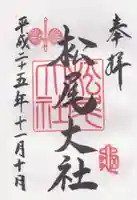 奉拝
松尾大社
平成二十五年十一月十日